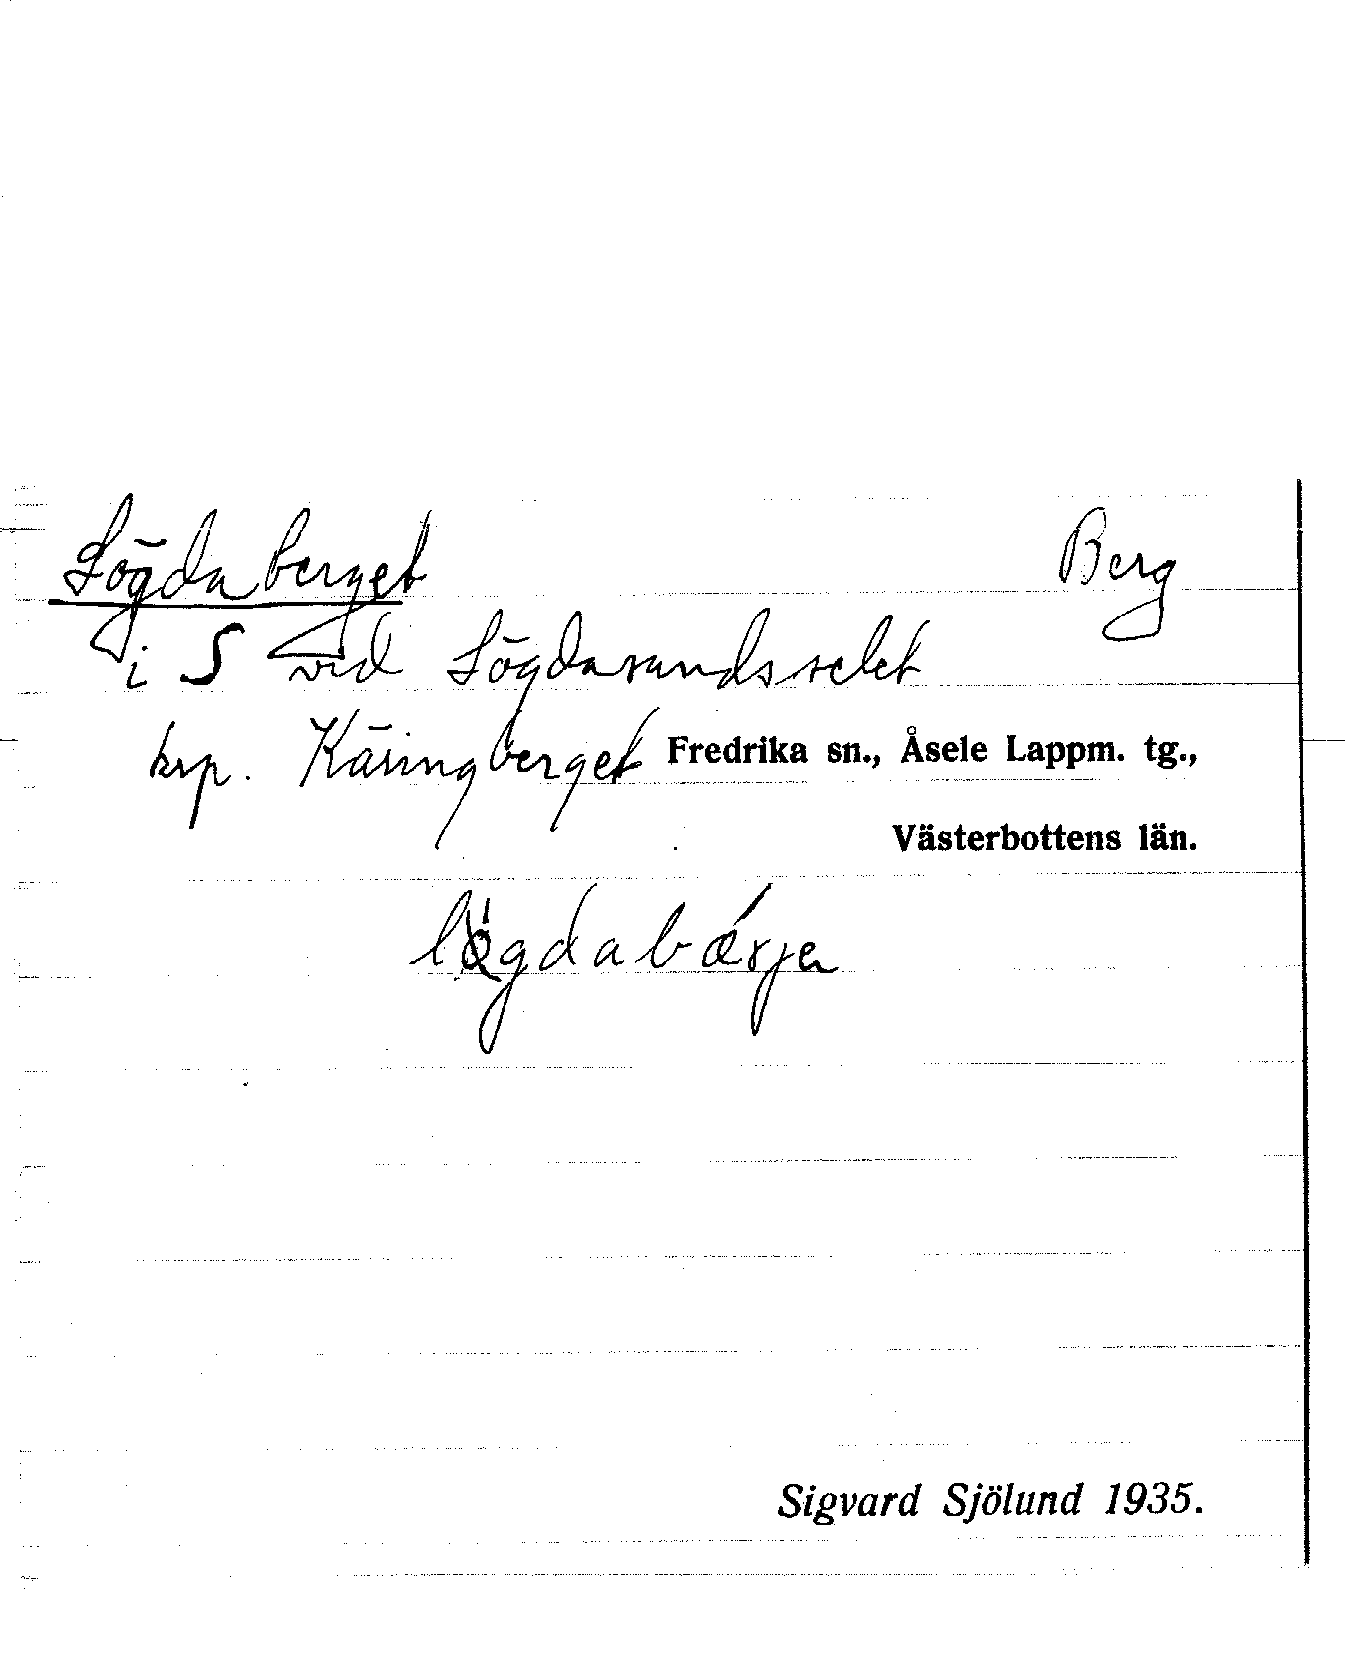 Lögdaberget Berg
i S vid Lögdasundsselet
krp. Käringberget Fredrika sn., Åsele Lappm. tg.,
Västerbottens län.
lögdabærjɐ
Sigvard Sjölund 1935.